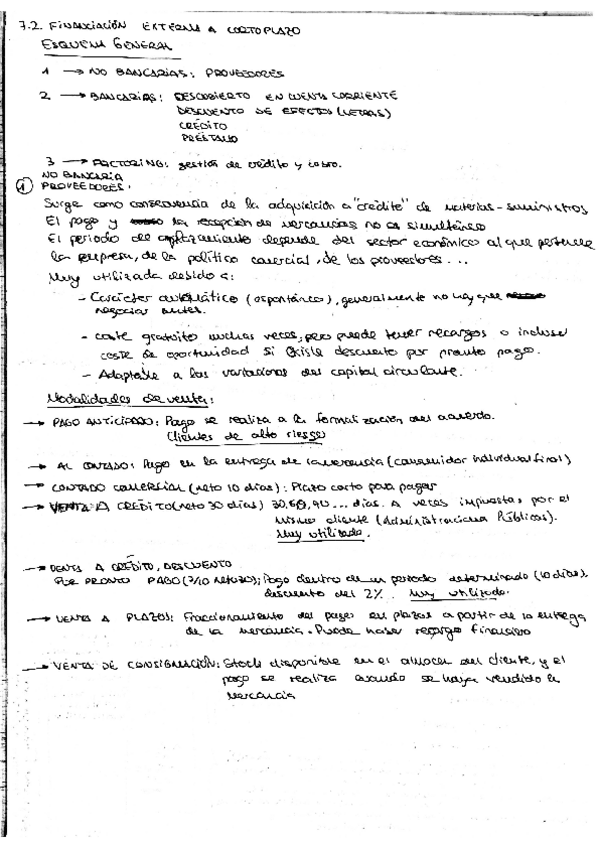 7.2. FINANCIACIÓN EXTERNA A CORTO PLAZO
ESQUEMA GENERAL
1 → NO BANCARIAS: PROVEEDORES
2 → BANCARIAS: DESCUBIERTO EN CUENTA CORRIENTE
DESCUENTO DE EFECTOS (LETRAS)
CRÉDITO
PRÉSTAMO
3 → FACTORING: gestión de crédito y cobro.
NO BANCARIA
① PROVEEDORES:
Surge como consecuencia de la adquisición a "crédito" de materias-suministros
El pago y la recepción de mercancías no es simultáneo
El periodo de aplazamiento depende del sector económico al que pertenece
la empresa, de la política comercial, de los proveedores...
Muy utilizada debido a:
- Carácter automático (espontáneo), generalmente no hay que
negociar antes.
- coste gratuito muchas veces, pero puede tener recargos o incluso
coste de oportunidad si existe descuento por pronto pago.
- Adaptable a las variaciones del capital circulante.
Modalidades de venta:
→ PAGO ANTICIPADO: Pago se realiza a la formalización del acuerdo.
(clientes de alto riesgo)
→ AL CONTADO: Pago en la entrega de la mercancia (consumidor individual final)
→ CONTADO COMERCIAL (neto 10 dias): Plazo corto para pagar
→ VENTA A CRÉDITO (neto 30 dias) 30, 60, 90... dias. A veces impuestas por el
mismo cliente (Administraciones Públicas).
Muy utilizado.
→ VENTA A CRÉDITO, DESCUENTO
POR PRONTO PAGO (2/10 neto 30): Pago dentro de un periodo determinado (10 dias),
descuento del 2%. Muy utilizado.
→ VENTA A PLAZOS: Fraccionamiento del pago en plazos a partir de la entrega
de la mercancia. Puede haber recargo financiero
→ VENTA DE CONSIGNACIÓN: Stock disponible en el almacen del cliente, y el
pago se realiza cuando se haya vendido la
mercancia